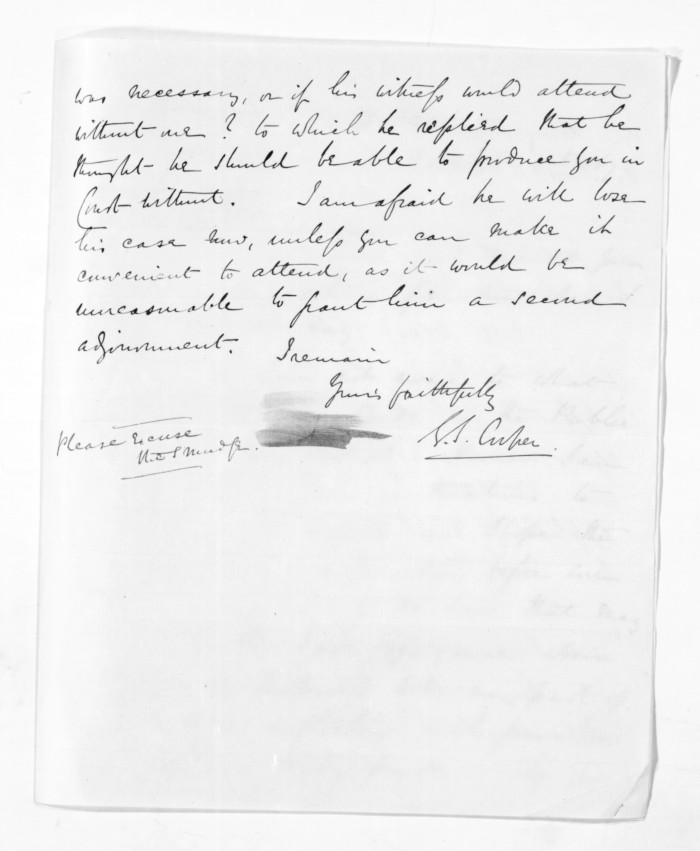 was necessary, or if his witness would attend
without one? to which he replied that he
thought he should be able to produce you in
Court without. I am afraid he will lose
his case now, unless you can make it
convenient to attend, as it would be
unreasonable to grant him a second
adjournment. I remain
Yours faithfully
G.S. Cooper.
Please Excuse
the Smudge.